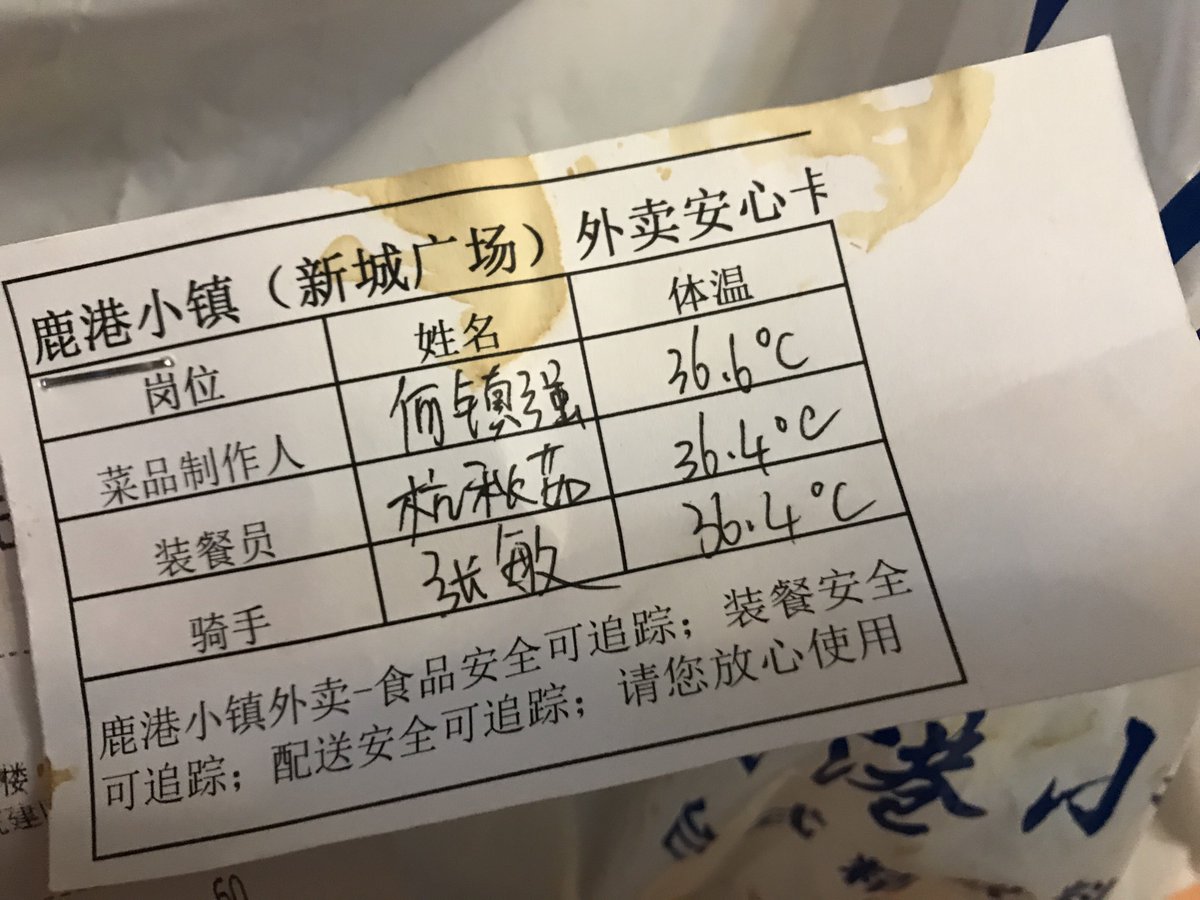 鹿港小镇（新城广场）外卖安心卡
岗位 姓名 体温
菜品制作人 何镇强 36.6℃
装餐员 杭秋茹 36.4℃
骑手 张敏 36.4℃
鹿港小镇外卖-食品安全可追踪；装餐安全
可追踪；配送安全可追踪；请您放心使用
楼
60
港小